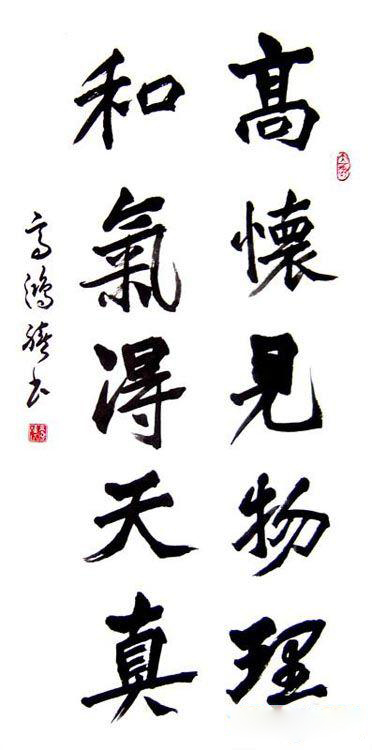 高懷見物理
和氣得天真
高鴻
書